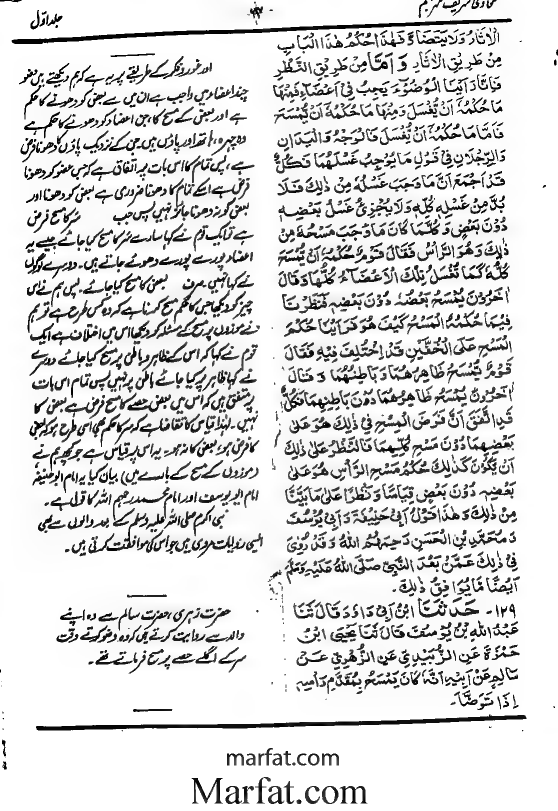 جلد اوّل
الْاٰثَارِ وَلَا يَتَضَادُّ فَهٰذَا حُكْمُ هٰذَا الْبَابِ
مِنْ طَرِيْقِ الْاٰثَارِ وَاَمَّا مِنْ طَرِيْقِ النَّظْرِ
فَاِنَّا رَاَيْنَا الْوُضُوْءَ يَجِبُ فِيْ اَعْضَاءٍ فَمِنْهَا
مَا حُكْمُهٗ اَنْ يُّغْسَلَ وَمِنْهَا مَا حُكْمُهٗ اَنْ يُّمْسَحَ
فَاَمَّا مَا حُكْمُهٗ اَنْ يُّغْسَلَ فَالْوَجْهُ وَالْيَدَانِ
وَالرِّجْلَانِ فِيْ قَوْلِ مَا يُوْجِبُ غَسْلَهُمَا فَكُلٌّ
قَدْ اَجْمَعَ اَنَّ مَا وَجَبَ غَسْلُهٗ مِنْ ذٰلِكَ فَلَا
بُدَّ مِنْ غَسْلِهٖ كُلِّهٖ وَلَا يُجْزِئُ غَسْلُ بَعْضِهٖ
دُوْنَ بَعْضٍ وَكُلَّمَا كَانَ مَا وَجَبَ مَسْحُهٗ مِنْ
ذٰلِكَ وَهُوَ الرَّاْسُ فَقَالَ قَوْمٌ حُكْمُهٗ اَنْ يُّمْسَحَ
كُلُّهٗ كَمَا تُغْسَلُ تِلْكَ الْاَعْضَاءُ كُلُّهَا وَقَالَ
اٰخَرُوْنَ يُمْسَحُ بَعْضُهٗ دُوْنَ بَعْضِهٖ فَنَظَرْنَا
فِيْمَا حُكْمُهُ الْمَسْحُ كَيْفَ هُوَ فَرَاَيْنَا حُكْمَ
الْمَسْحِ عَلَى الْخُفَّيْنِ قَدِ اخْتُلِفَ فِيْهِ فَقَالَ
قَوْمٌ يُمْسَحُ ظَاهِرُهُمَا وَبَاطِنُهُمَا وَقَالَ
اٰخَرُوْنَ يُمْسَحُ ظَاهِرُهُمَا دُوْنَ بَاطِنِهِمَا فَكُلٌّ
قَدِ اتَّفَقَ اَنَّ فَرْضَ الْمَسْحِ فِيْ ذٰلِكَ هُوَ عَلٰى
بَعْضِهِمَا دُوْنَ مَسْحِ كُلِّهِمَا فَالنَّظْرُ عَلٰى ذٰلِكَ
اَنْ يَّكُوْنَ كَذٰلِكَ حُكْمُ مَسْحِ الرَّاْسِ هُوَ عَلٰى
بَعْضِهٖ دُوْنَ بَعْضٍ قِيَاسًا وَّنَظْرًا عَلٰى مَا بَيَّنَّا
مِنْ ذٰلِكَ وَهٰذَا قَوْلُ اَبِيْ حَنِيْفَةَ وَاَبِيْ يُوْسُفَ
وَمُحَمَّدِ بْنِ الْحَسَنِ رَحِمَهُمُ اللّٰهُ وَقَدْ رُوِيَ
فِيْ ذٰلِكَ عَمَّنْ بَعْدَ النَّبِيِّ صَلَّى اللّٰهُ عَلَيْهِ وَسَلَّمَ
اَيْضًا مَّا يُوَافِقُ ذٰلِكَ۔
١٢٩۔ حَدَّثَنَا ابْنُ اَبِيْ دَاوٗدَ قَالَ ثَنَا
عَبْدُ اللّٰهِ بْنُ يُوْسُفَ قَالَ ثَنَا يَحْيَى ابْنُ
حَمْزَةَ عَنِ الزُّبَيْدِيِّ عَنِ الزُّهْرِيِّ عَنْ
سَالِمٍ عَنْ اَبِيْهِ اَنَّهٗ كَانَ يَمْسَحُ بِمُقَدَّمِ رَاْسِهٖ
اِذَا تَوَضَّاَ۔
اور غور و فکر کے طریقے پر یہ ہے کہ ہم دیکھتے ہیں وضو
چند اعضاء میں واجب ہے ان میں سے بعض کو دھونے کا حکم
ہے اور بعض کے مسح کا، جن اعضاء کو دھونے کا حکم ہے
وہ چہرہ، ہاتھ اور پاؤں ہیں جن کے نزدیک پاؤں کو دھونا فرض
ہے، پس تمام کا اس بات پر اتفاق ہے کہ جس عضو کو دھونا
فرض ہے اسکے تمام کا دھونا ضروری ہے بعض کو دھونا اور
بعض کو نہ دھونا جائز نہیں پس جب سر کا مسح فرض
ہے تو ایک قوم نے کہا سارے سر کا مسح کیا جائے جیسے یہ
اعضاء پورے پورے دھوئے جاتے ہیں۔ دوسرے لوگوں
نے کہا نہیں صرف بعض کا مسح کیا جائے۔ پس ہم نے اس
چیز کو دیکھا جس کا حکم مسح کرنا ہے کہ وہ کس طرح ہے تو ہم
نے موزوں پر مسح کے مسئلہ کو دیکھا اس میں اختلاف ہے ایک
قوم نے کہا کہ اس کے ظاہر و باطن پر مسح کیا جائے دوسرے
نے کہا ظاہر پر کیا جائے باطن پر نہیں پس تمام اس بات
پر متفق ہیں کہ اس میں بعض حصے کا مسح فرض ہے بعض کا
نہیں۔ لہٰذا قیاس کا تقاضا ہے کہ سر کا حکم بھی اسی طرح ہو کہ بعض
کا فرض ہو، بعض کا نہ ہو۔ یہ اس پر قیاس ہے جو کچھ ہم نے
(موزوں کے مسح کے بارے میں) بیان کیا یہ امام ابوحنیفہ
امام ابو یوسف اور امام محمد رحمہم اللہ کا قول ہے۔
نبی اکرم صلی اللہ علیہ وسلم کے بعد والوں سے بھی
ایسی روایات مروی ہیں جو اس کی موافقت کرتی ہیں۔
حضرت زہری، حضرت سالم سے وہ اپنے
والد سے روایت کرتے ہیں کہ وہ وضو کرتے وقت
سر کے اگلے حصے پر مسح فرماتے تھے۔
marfat.com
Marfat.com